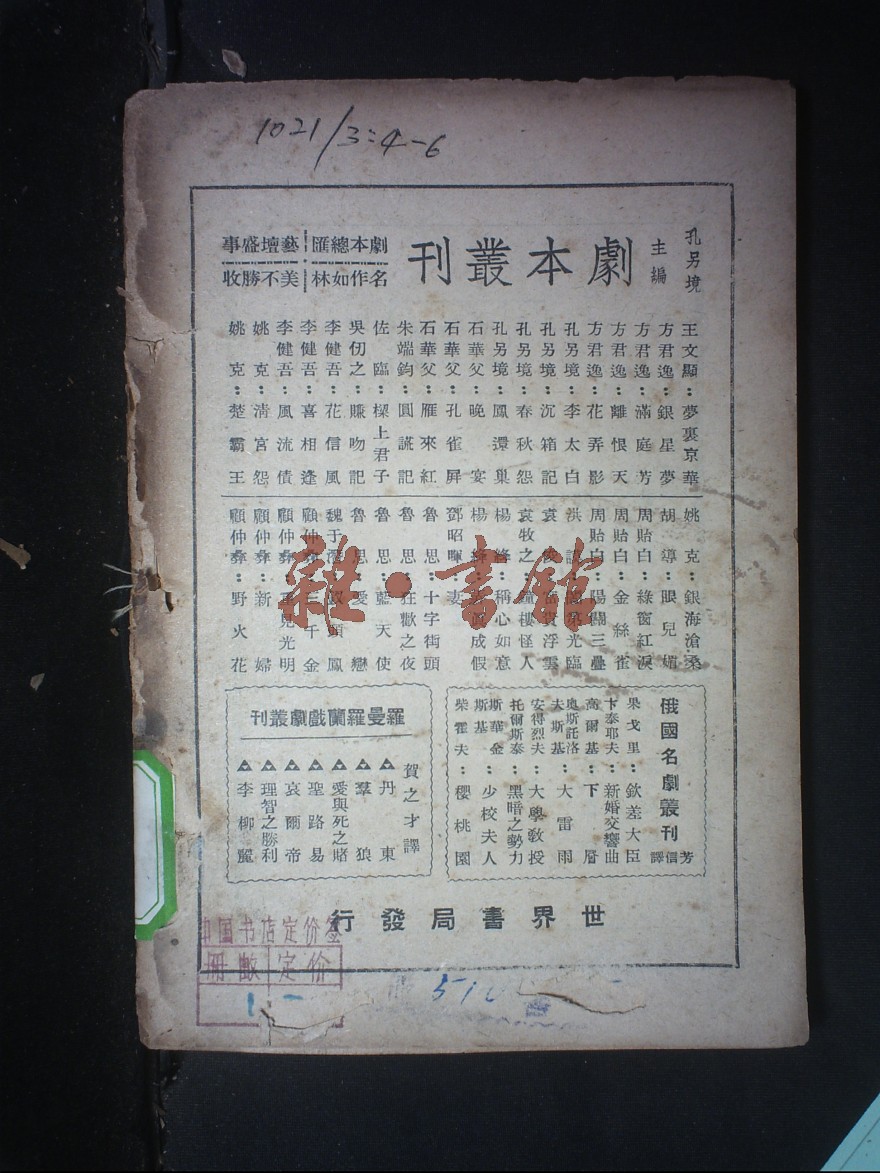 1021/3:4-6
孔另境
主編
劇本叢刊
劇本總匯 藝壇盛事
名作如林 美不勝收
王文顯：夢裏京華
方君逸：銀星夢
方君逸：滿庭芳
方君逸：離恨天
方君逸：花弄影
孔另境：李太白
孔另境：沉箱記
孔另境：春秋怨
孔另境：鳳還巢
石華父：晚宴
石華父：孔雀屏
石華父：雁來紅
朱端鈞：圓謊記
佐臨：樑上君子
吳仞之：賺吻記
李健吾：花信風
李健吾：喜相逢
李健吾：風流債
姚克：清宮怨
姚克：楚霸王
姚克：銀海滄桑
胡導：眼兒媚
周貽白：綠窗紅淚
周貽白：金絲雀
周貽白：陽關三疊
洪謨：光臨
袁 浮雲
袁牧之：鐘樓怪人
楊絳：稱心如意
楊絳：成假
鄧昭暉：妻
魯思：十字街頭
魯思：狂歡之夜
魯思：藍天使
魯思：愛戀
魏于潛：釵頭鳳
顧仲彝：三千金
顧仲彝：重見光明
顧仲彝：新婦
顧仲彝：野火花
俄國名劇叢刊
芳信譯
果戈里：欽差大臣
卡泰耶夫：新婚交響曲
高爾基：下層
奧斯託洛夫斯基：大雷雨
安得烈夫：大學教授
托爾斯泰：黑暗之勢力
斯華金斯基：少校夫人
柴霍夫：櫻桃園
羅曼羅蘭戲劇叢刊
賀之才譯
▲丹東
▲羣狼
▲愛與死之賭
▲聖路易
▲哀爾帝
▲理智之勝利
▲李柳麗
世界書局發行
雜·書館
中国书店定价签
册数 定价
1